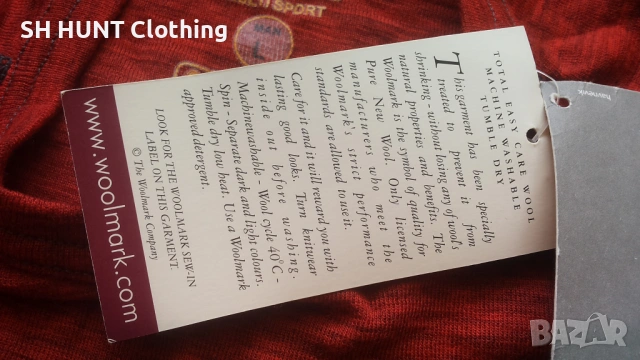 SH HUNT Clothing
SPORT
MAN
TOTAL EASY CARE WOOL
MACHINE WASHABLE
TUMBLE DRY
This garment has been specially
treated to prevent it from
shrinking - without losing any of wool's
natural properties and benefits. The
Woolmark is the symbol of quality for
Pure New Wool. Only licensed
manufacturers who meet the
Woolmark's strict performance
standards are allowed to use it.
Care for it and it will reward you with
lasting good looks. Turn knitwear
inside out before washing.
Machinewashable - Wool cycle 40°C -
Spin - Separate dark and light colours.
Tumble dry low heat. Use a Woolmark
approved detergent.
LOOK FOR THE WOOLMARK SEW-IN
LABEL ON THIS GARMENT.
© The Woolmark Company
www.woolmark.com
BAZAR
bg